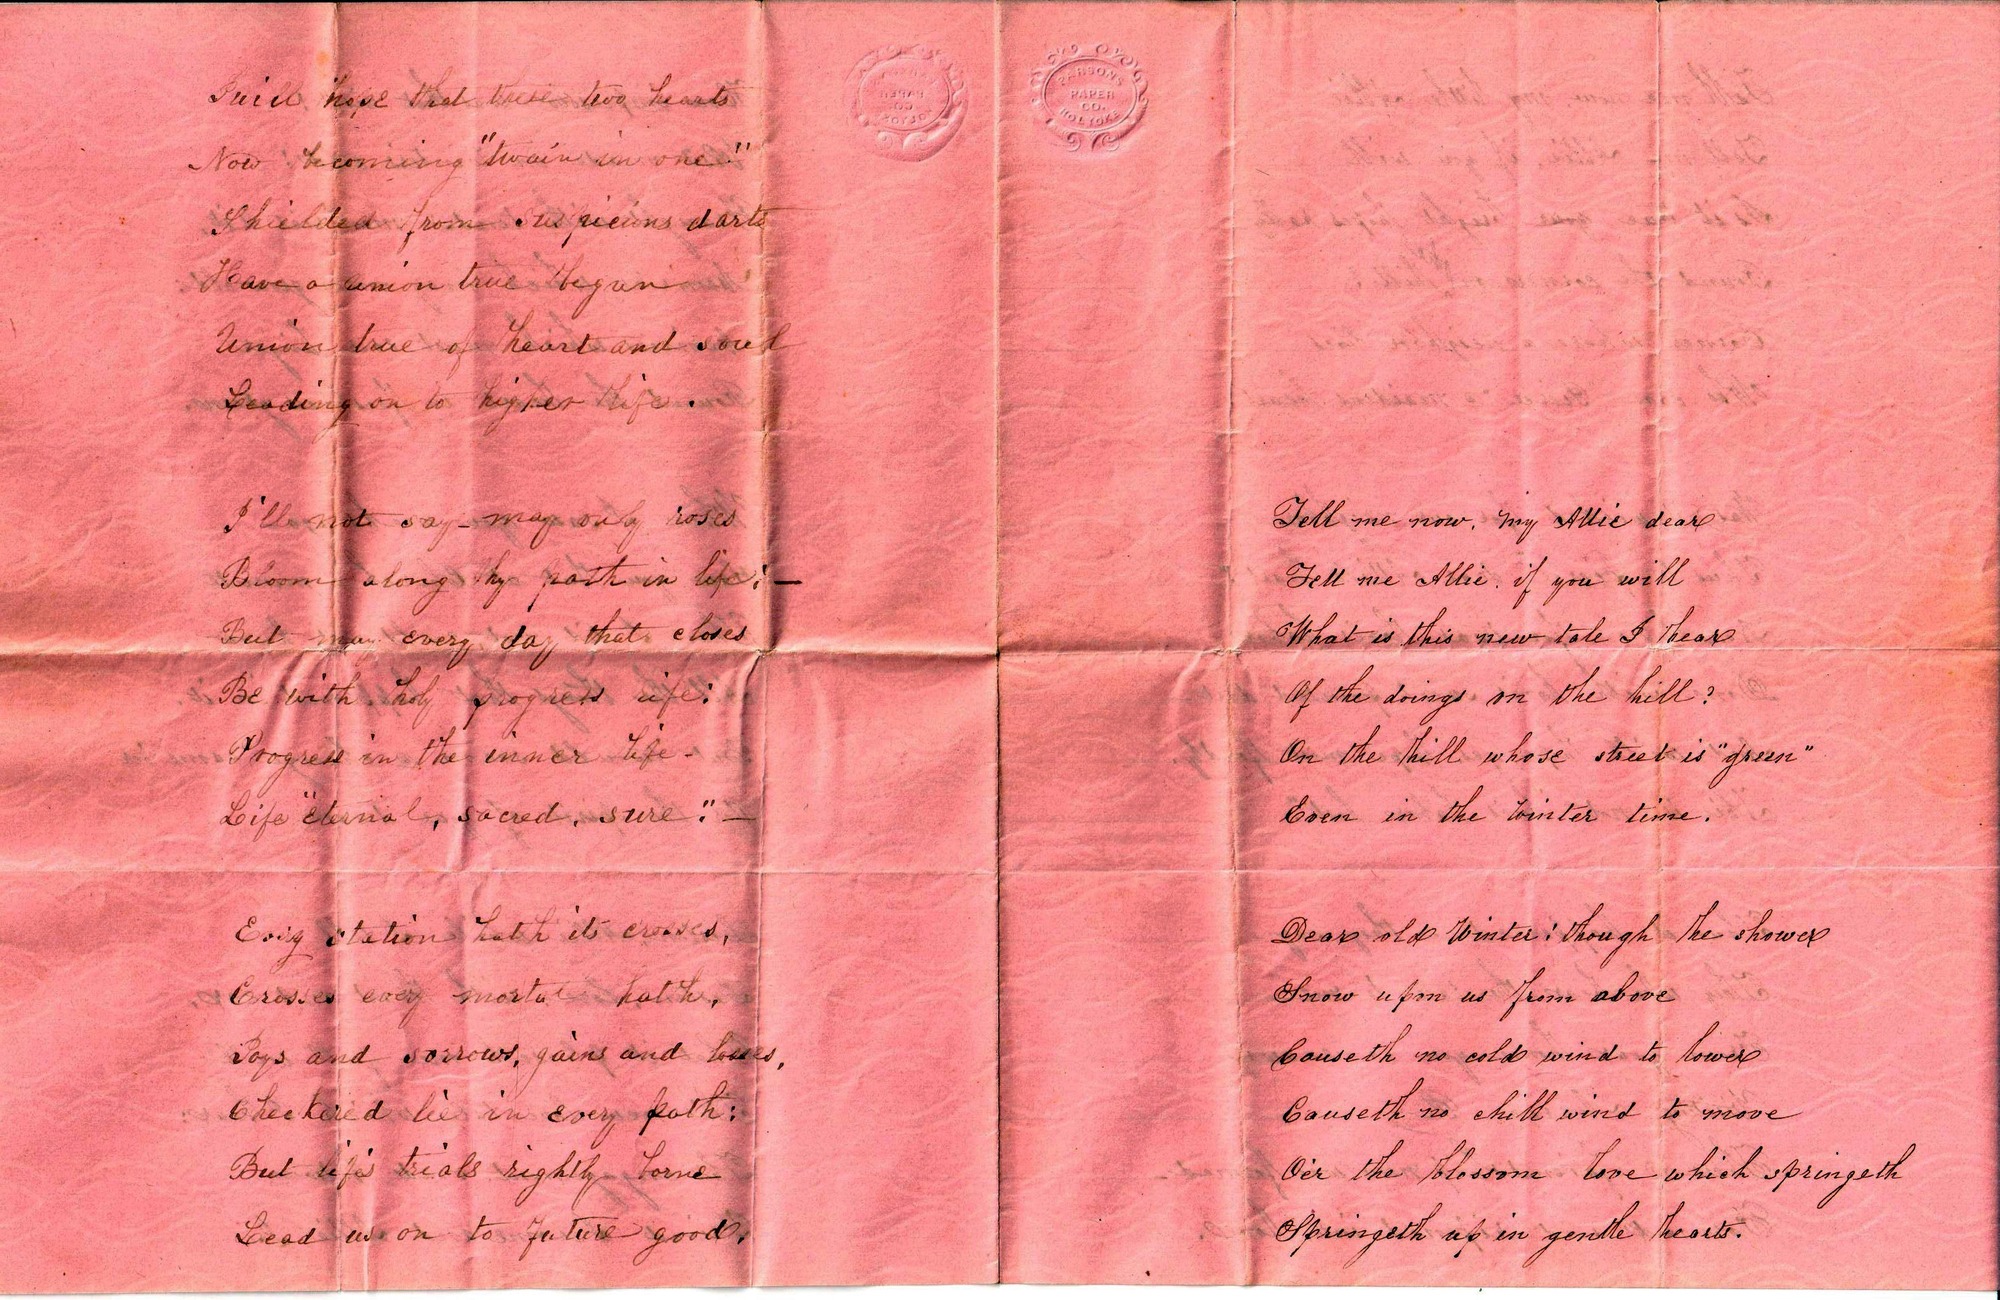 I will hope that these two hearts
Now becoming "twain in one"
Shielded from suspicions darts
Have a union true begun
Union true of heart and soul
Leading on to higher life.
I'll not say - may only roses
Bloom along thy path in life: —
But may every day that closes
Be with holy progress rife:
Progress in the inner life -
Life "eternal, sacred, sure": —
Every station hath its crosses,
Crosses every mortal hath,
Joys and sorrows, gains and losses,
Checkered lie in every path:
But life's trials rightly borne
Lead us on to future good.
PARSONS
PAPER
CO.
HOLYOKE
Tell me now, my Allie dear
Tell me Allie, if you will
What is this new tale I hear
Of the doings on the hill?
On the hill whose street is "green"
Even in the Winter time.
Dear old Winter! though the shower
Snow upon us from above
Causeth no cold wind to lower
Causeth no chill wind to move
O'er the blossom love which springeth
Springeth up in gentle hearts.